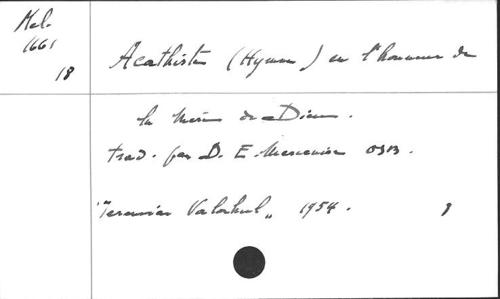 Mel.
1661
18
Acathiste (Hymne) en l'honneur de
la Mère de Dieu.
trad. par D. E. Mercenier OSB.
1954.